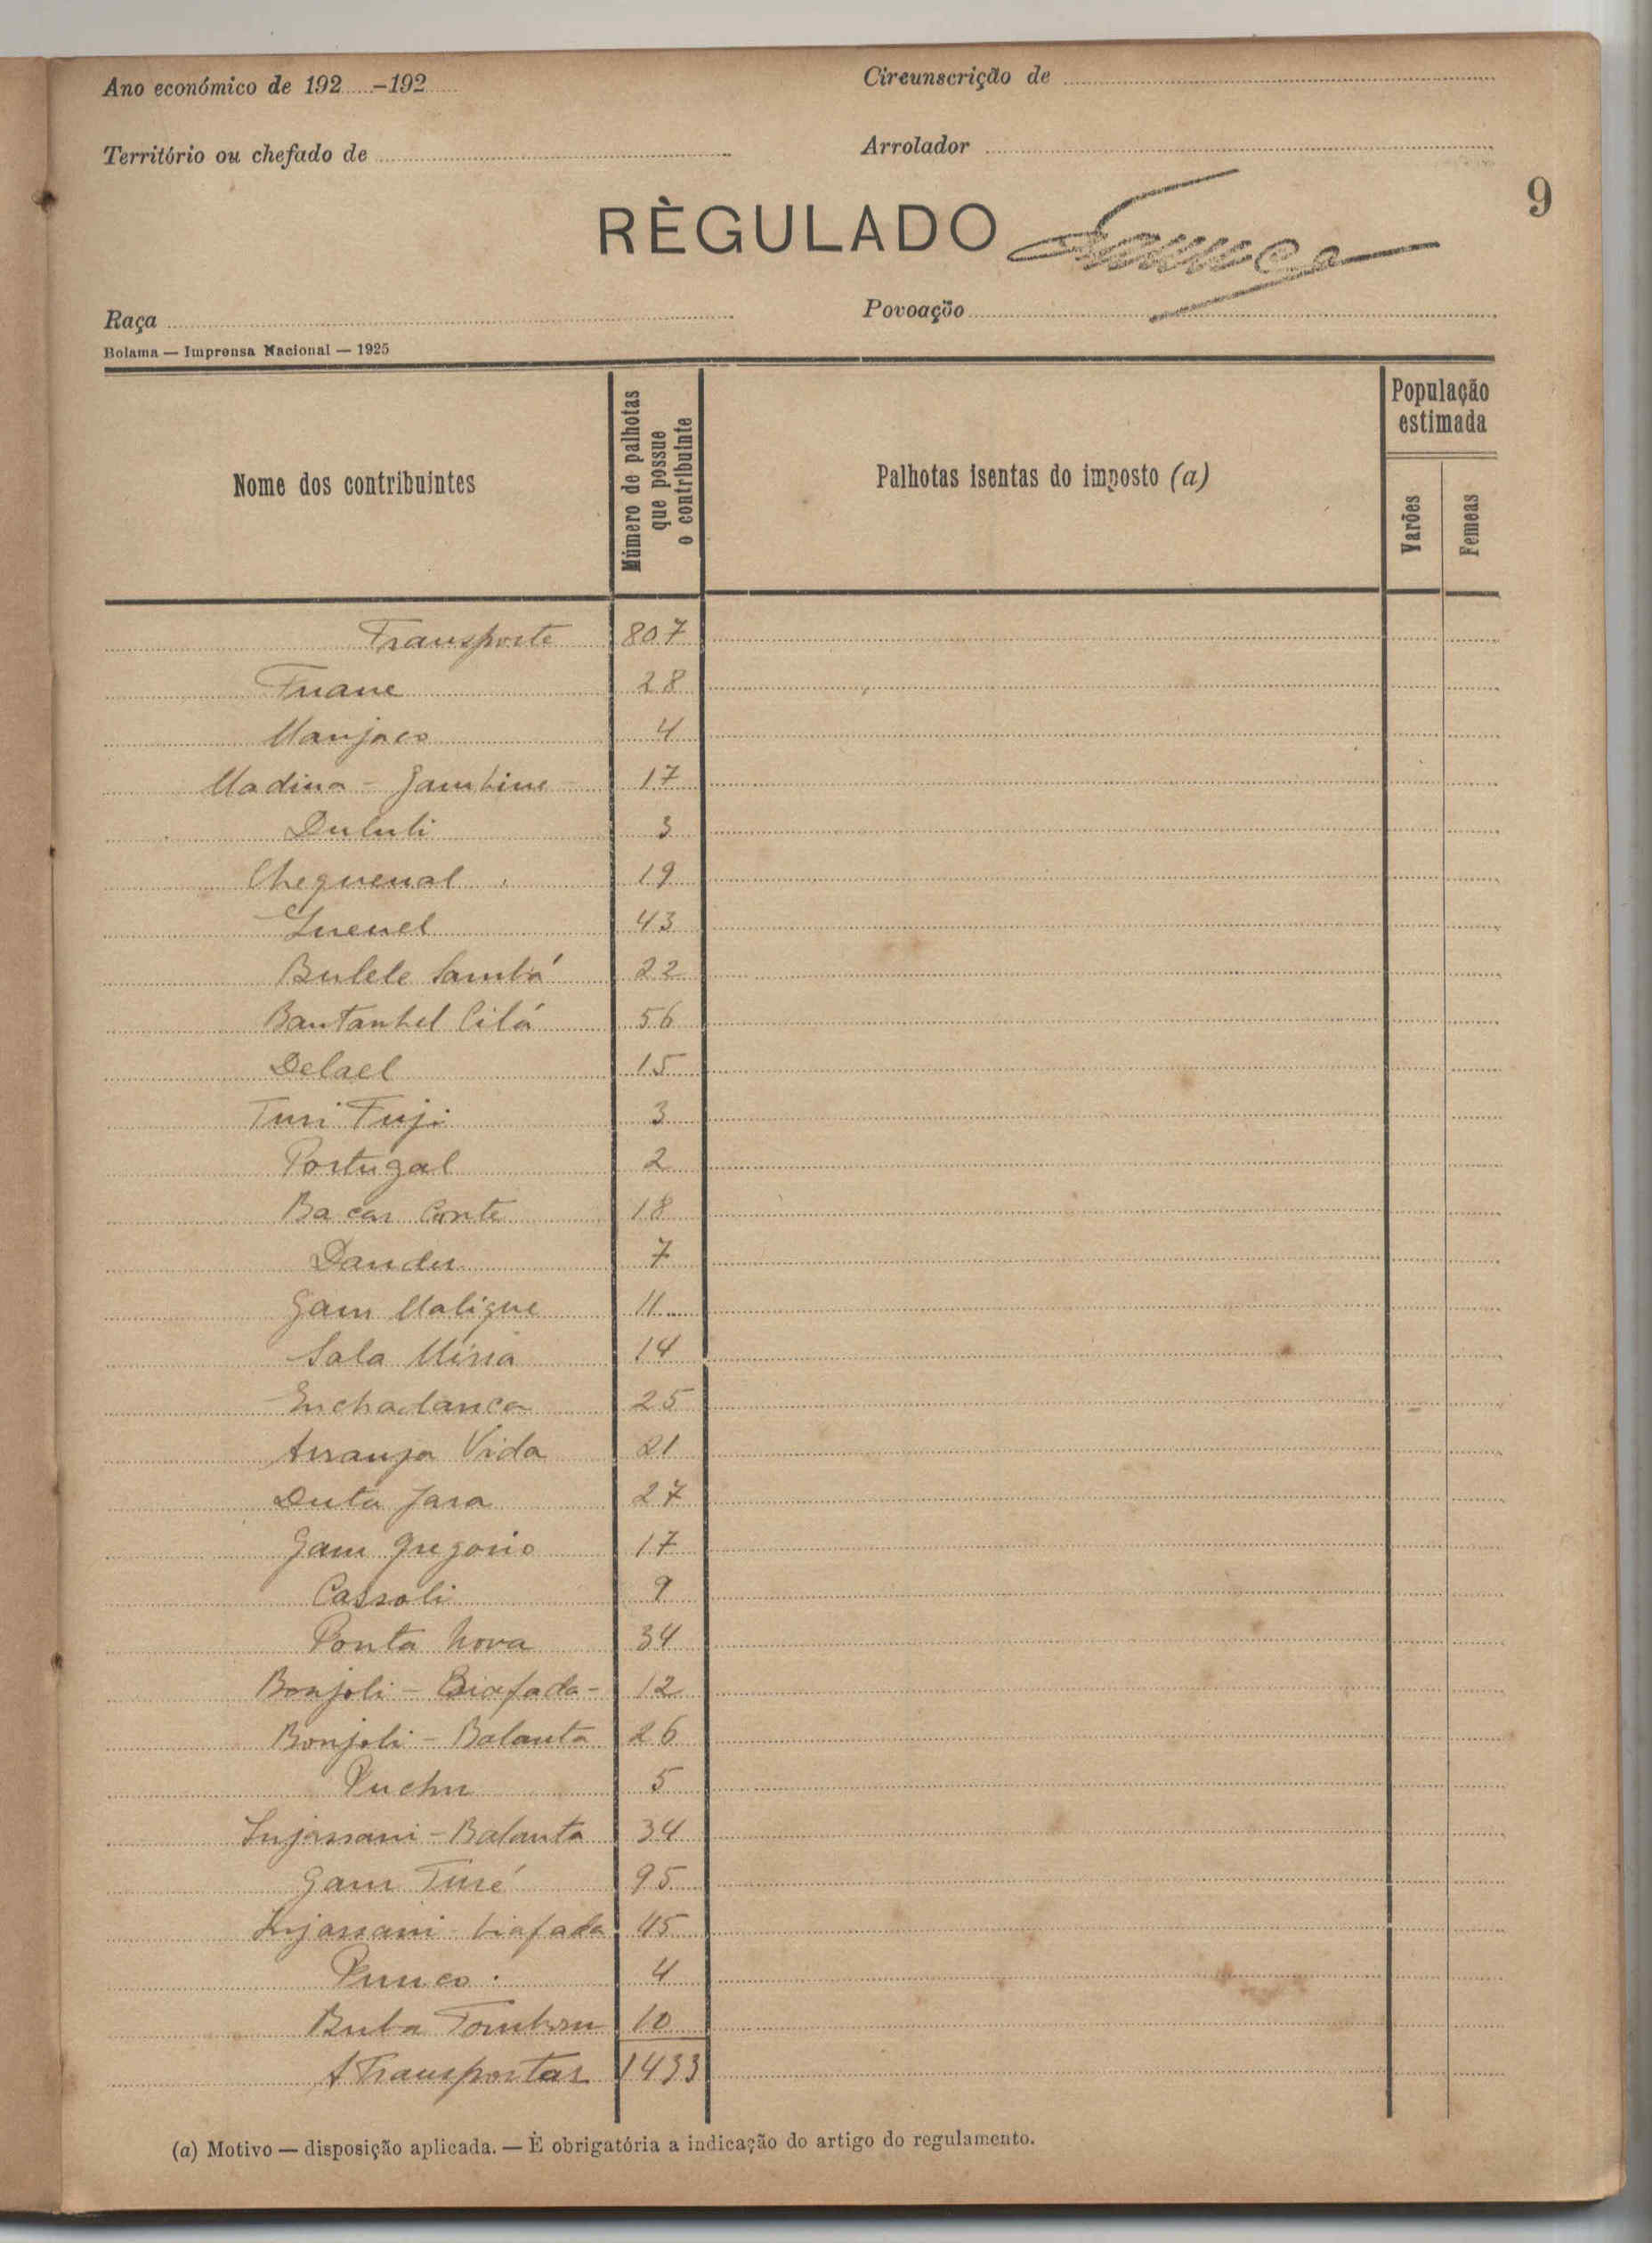 Ano económico de 192.....-192.....
Circunscrição de
Território ou chefado de
Arrolador
9
RÈGULADO
Raça
Povoação
Bolama — Imprensa Nacional — 1925
Nome dos contribuintes
Número de palhotas que possue o contribuinte
Palhotas isentas do imposto (a)
População estimada
Varões
Femeas
Transporte 807
Fuane 28
Manjaco 4
Madina - Jambine - 17
Dululi 3
Chequenal 19
Luenel 43
Bulele Sambá 22
Bantanhel Cilá 56
Delael 15
Turi Fuji 3
Portugal 2
Bacar Conte 18
Dandu 7
Gam Malique 11
Sala Miria 14
Enchadanca 25
Arranja Vida 21
Duta Jara 27
Gam Gregorio 17
Cassoli 9
Ponta Nova 34
Bonjoli - Biafada - 12
Bonjoli - Balanta 26
Puchu 5
Injassani - Balanta 34
Gam Turé 95
Injassani - biafada 45
4
Buba Tombom 10
A Transportar 1433
(a) Motivo — disposição aplicada. — È obrigatória a indicação do artigo do regulamento.